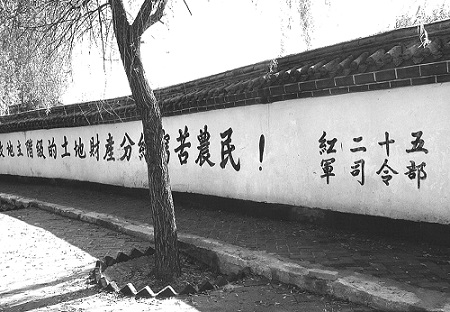 地主階級的土地財產分給苦農民！
紅二十五
軍司令部